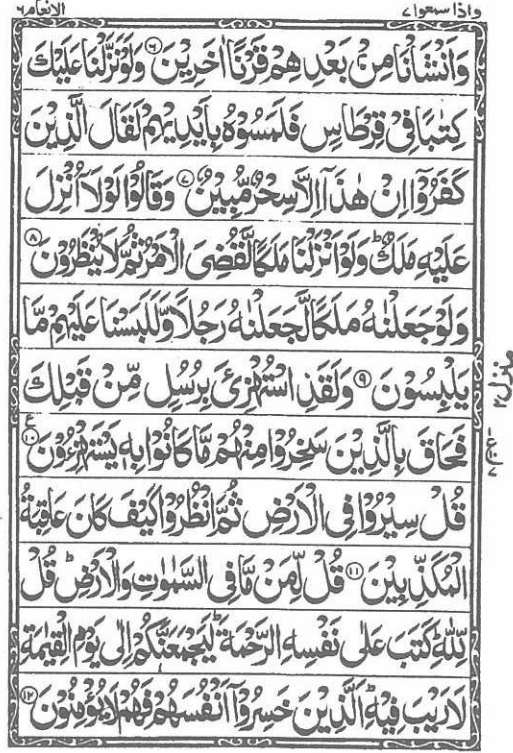 واذا سمعوا ٧ الانعام ٦
وَاَنْشَاْنَا مِنْۢ بَعْدِهِمْ قَرْنًا اٰخَرِيْنَ ۶ وَلَوْ نَزَّلْنَا عَلَيْكَ
كِتٰبًا فِيْ قِرْطَاسٍ فَلَمَسُوْهُ بِاَيْدِيْهِمْ لَقَالَ الَّذِيْنَ
كَفَرُوْۤا اِنْ هٰذَاۤ اِلَّا سِحْرٌ مُّبِيْنٌ ۷ وَقَالُوْا لَوْلَاۤ اُنْزِلَ
عَلَيْهِ مَلَكٌ ؕ وَلَوْ اَنْزَلْنَا مَلَكًا لَّقُضِيَ الْاَمْرُ ثُمَّ لَا يُنْظَرُوْنَ ۸
وَلَوْ جَعَلْنٰهُ مَلَكًا لَّجَعَلْنٰهُ رَجُلًا وَّلَلَبَسْنَا عَلَيْهِمْ مَّا
يَلْبِسُوْنَ ۹ وَلَقَدِ اسْتُهْزِئَ بِرُسُلٍ مِّنْ قَبْلِكَ
فَحَاقَ بِالَّذِيْنَ سَخِرُوْا مِنْهُمْ مَّا كَانُوْا بِهٖ يَسْتَهْزِءُوْنَ ۱۰ ع
قُلْ سِيْرُوْا فِي الْاَرْضِ ثُمَّ انْظُرُوْا كَيْفَ كَانَ عَاقِبَةُ
الْمُكَذِّبِيْنَ ۱۱ قُلْ لِّمَنْ مَّا فِي السَّمٰوٰتِ وَالْاَرْضِ ؕ قُلْ
لِّلّٰهِ ؕ كَتَبَ عَلٰى نَفْسِهِ الرَّحْمَةَ ؕ لَيَجْمَعَنَّكُمْ اِلٰى يَوْمِ الْقِيٰمَةِ
لَا رَيْبَ فِيْهِ ؕ اَلَّذِيْنَ خَسِرُوْۤا اَنْفُسَهُمْ فَهُمْ لَا يُؤْمِنُوْنَ ۱۲
منزل ۲